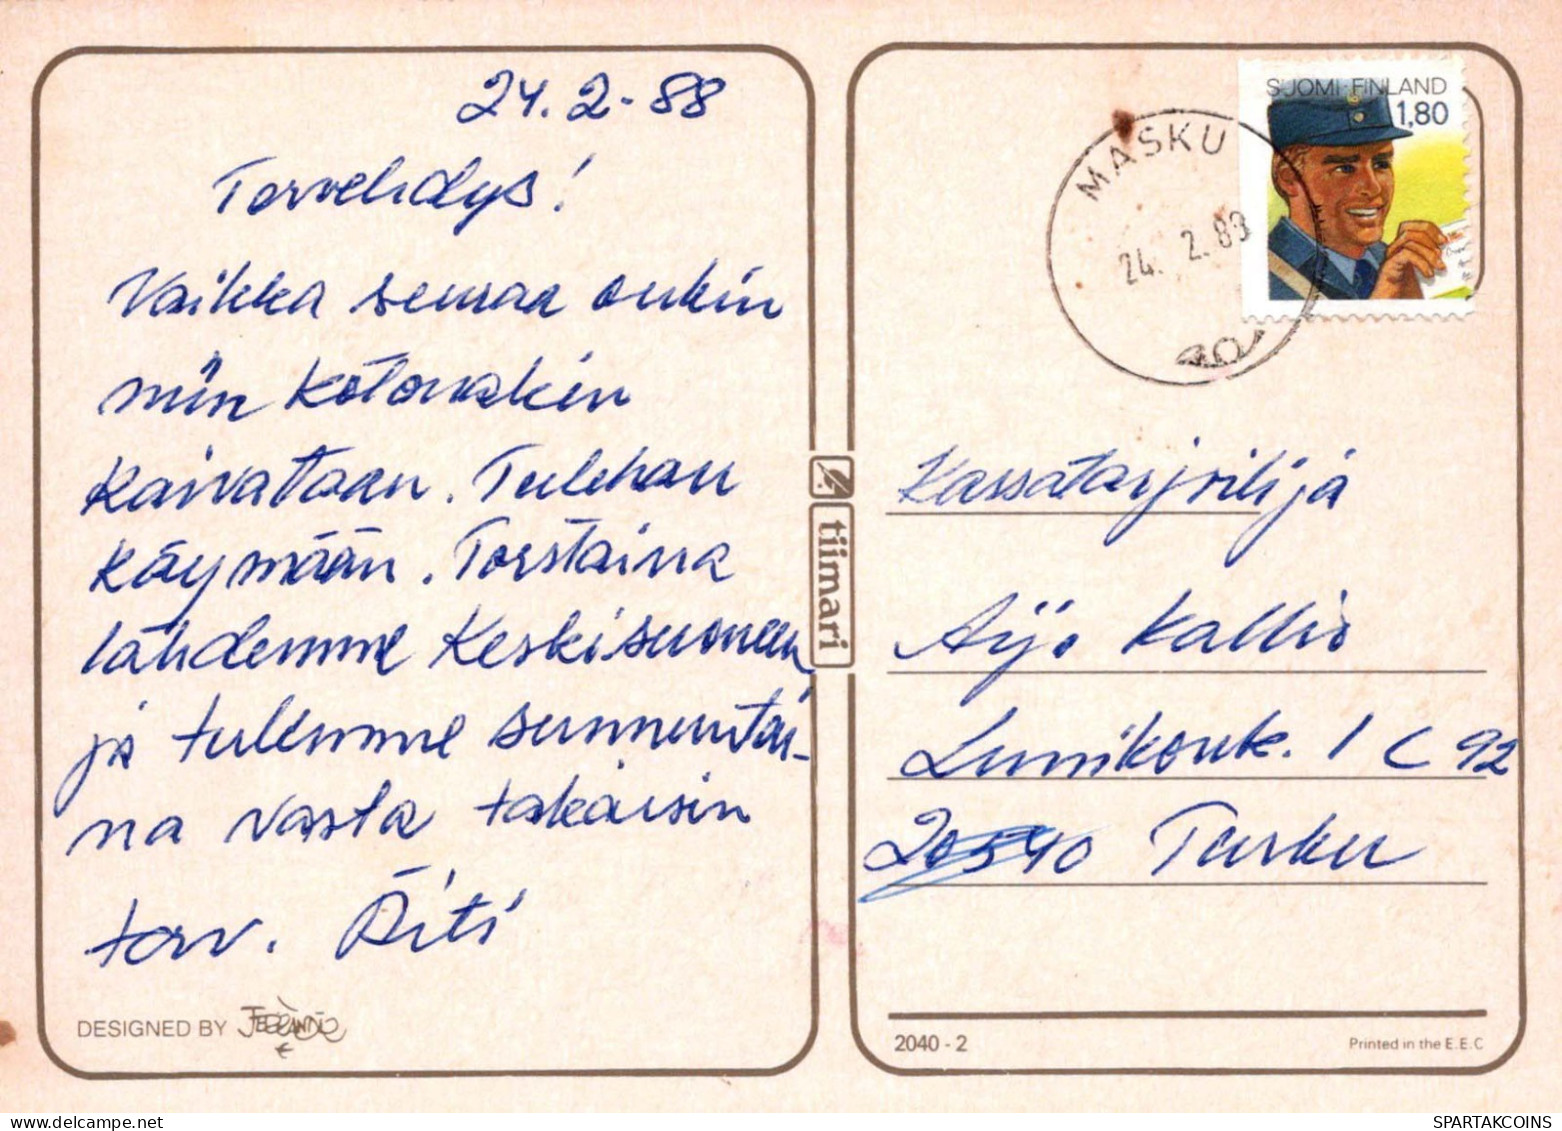 24.2-88
Tervehdys!
Vaikka seuraa onkin
niin kotonakin
kaivataan. Tulehan
käymään. Torstaina
lähdemme Keskisuomeen
ja tulemme sunnuntai-
na vasta takaisin
terv. Äiti
DESIGNED BY
tiimari
SUOMI FINLAND
1,80
MASKU
24. 2.88
Kassatarjoilija
Aijo Kallio
Lumikonk. 1 C 92
20540 Turku
2040 - 2
Printed in the E.E.C
SPARTAKCOINS